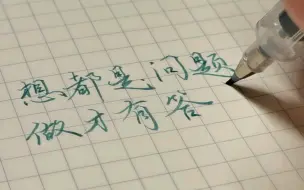 想都是问题
做才有答